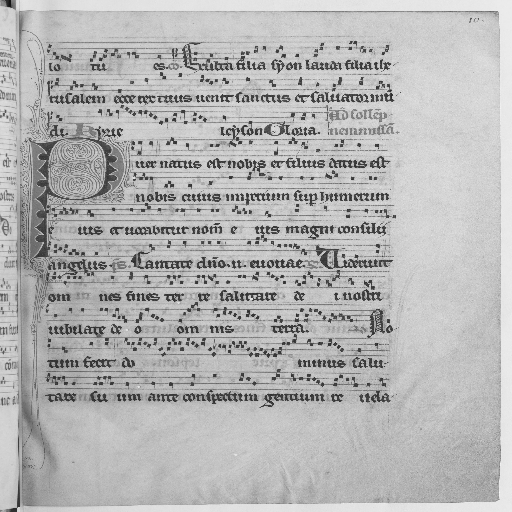 10.
io tu es. co. Exulta filia syon lauda filia ihe
rusalem ecce rex tuus uenit sanctus et saluator mu
di. Kyrie leyson Gloria. Ad sollep
nem missa.
Puer natus est nobis et filius datus est
nobis cuius imperium sup humerum
e ius et uocabitur nom e ius magni consilii
angelus ps. Cantate dno. ii. euouae. Gr. Uiderunt
om nes fines ter re salutare de i nostri
iubilate de o om nis terra. No
tum fecit do minus salu
tare su um ante conspectum gentium re uela